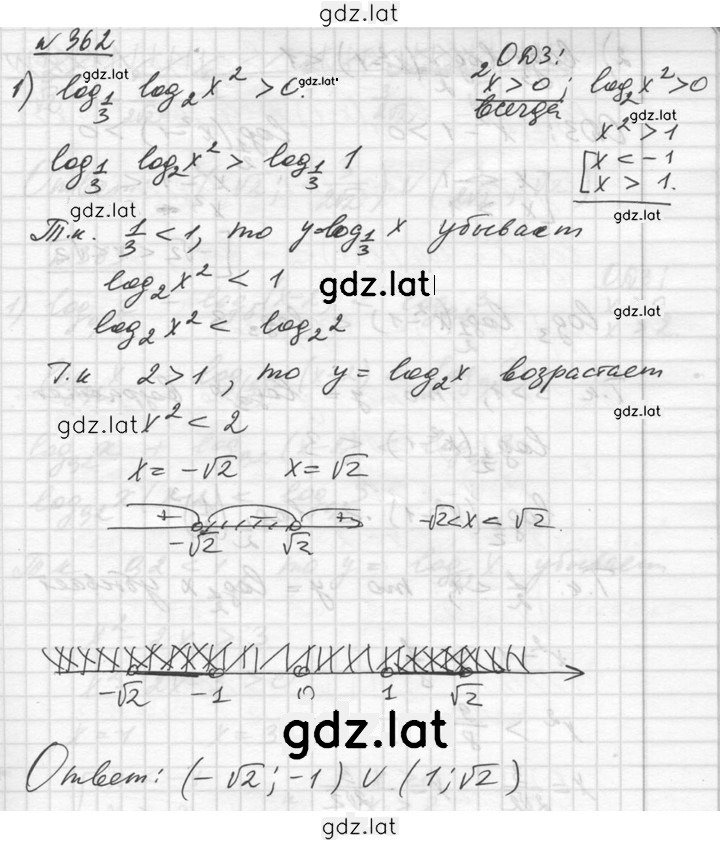 gdz.lat
№ 362
gdz.lat
1) log_{1/3} log_2 x^2 > 0. gdz.lat
ОДЗ:
x^2 > 0 ; log_2 x^2 > 0
всегда
gdz.lat
x^2 > 1
[ x < -1
[ x > 1.
log_{1/3} log_2 x^2 > log_{1/3} 1
gdz.lat
Т.к. 1/3 < 1, то y=log_{1/3} x убывает
log_2 x^2 < 1
gdz.lat
gdz.lat
log_2 x^2 < log_2 2
Т.к 2 > 1, то y = log_2 x возрастает
gdz.lat
gdz.lat x^2 < 2
x = -√2 x = √2
+ - +
-√2 √2
-√2 < x < √2.
-√2 -1 0 1 √2
gdz.lat
Ответ: (-√2; -1) ∪ (1; √2)
gdz.lat